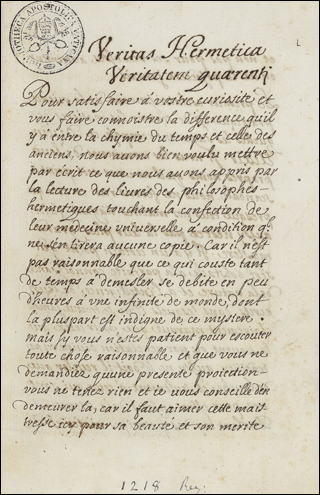 BIBLIOTHECA APOSTOLICA VATICANA
Veritas Hermetica
Veritatem quærenti
Pour satisfaire á vostre curiosité et
vous faire connoistre la difference qu'il
y á entre la chymie du temps et celle des
anciens, nous avons bien voulu mettre
par écrit ce que nous avons appris par
la lecture des livres des philosophes
hermetiques touchant la confection de
leur medecine universelle á condition q̃
ne s'en tirera aucune copie. Car il n'est
pas raisonnable que ce qui couste tant
de temps á demesler se debite en peu
d'heures á vne infinité de monde, dont
la pluspart est indigne de ce mystere.
mais sy vous n'estes patient pour escouter
toute chose raisonnable et que vous ne
demandiez qu'une presente projection
vous ne tenez rien et ie vous conseille d'en
demeurer la, car il faut aimer cette mais
tresse icy pour sa beauté et son merite
1218 Reg.